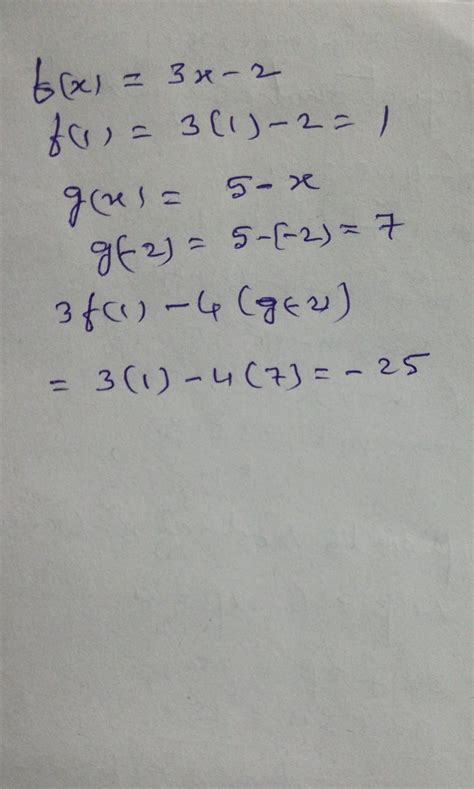 f(x) = 3x-2
f(1) = 3(1)-2 = 1
g(x) = 5-x
g(-2) = 5-(-2) = 7
3f(1) -4 (g(-2)
= 3(1) -4(7) = -25